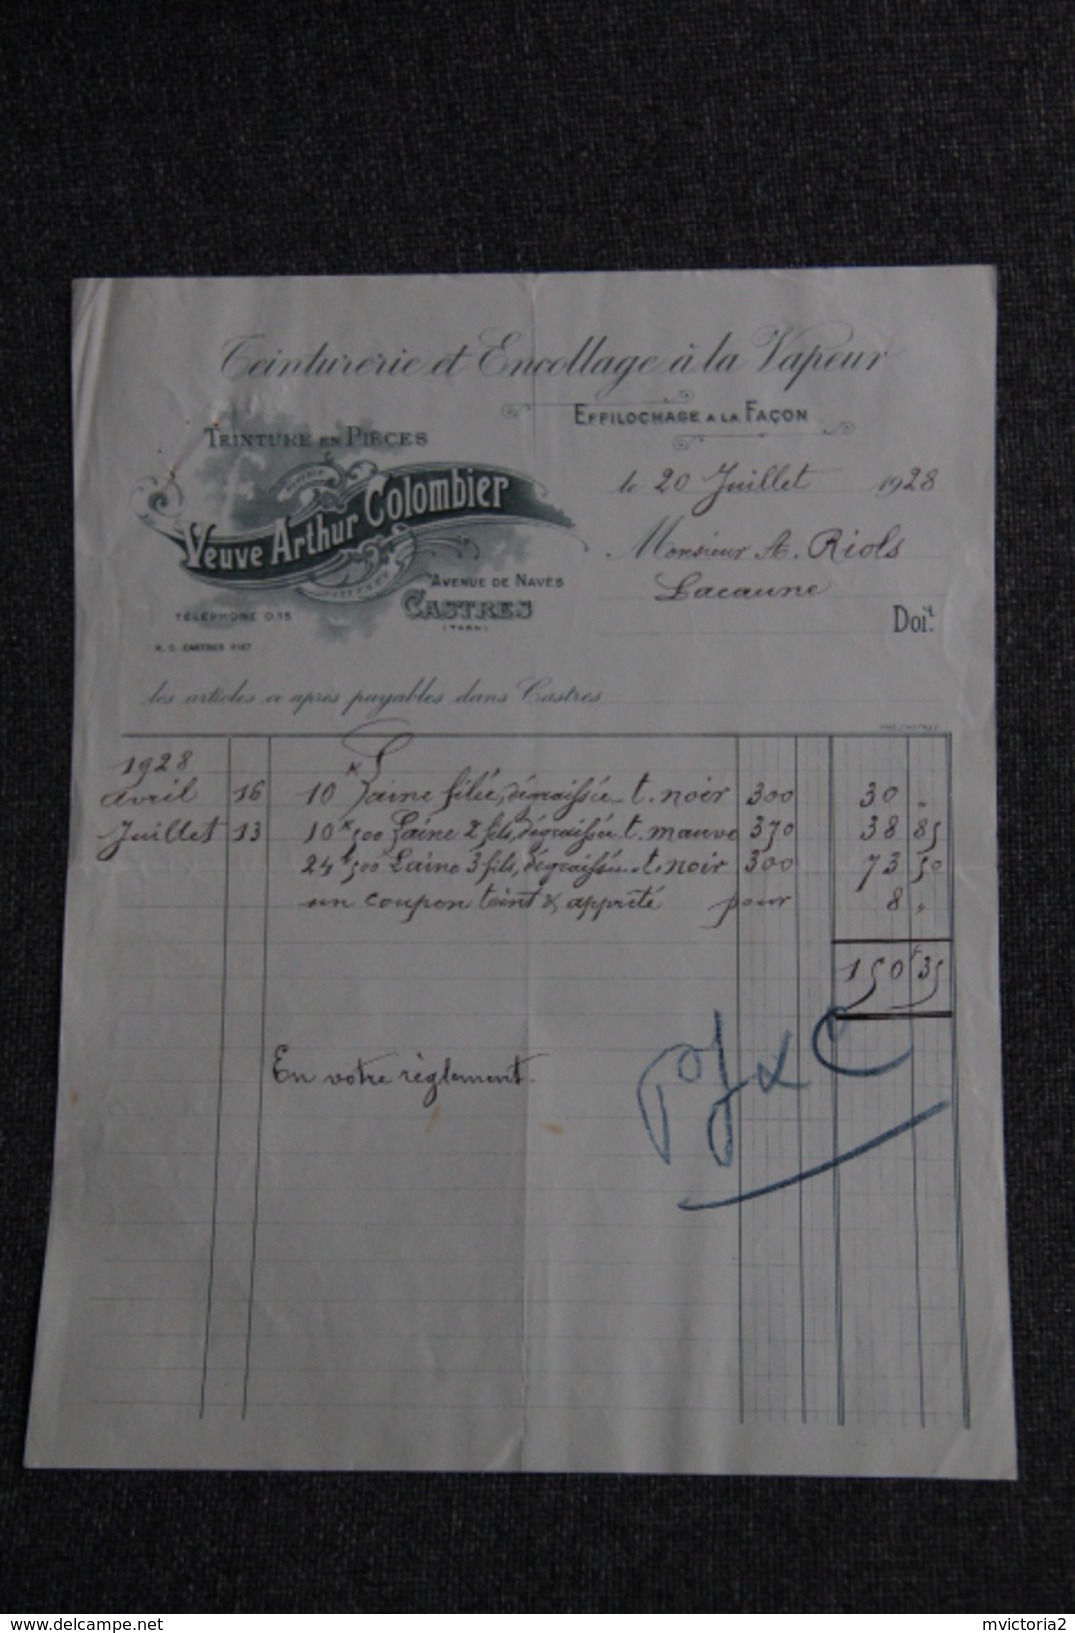 Teinturerie et Encollage à la Vapeur
Effilochage à la Façon
Teinture en Pièces
Veuve Arthur Colombier
Avenue de Navès
Castres
(Tarn)
Téléphone 0.15
R. C. Castres
le 20 Juillet 1928
Monsieur A. Riols
Lacaune
Doit
les articles ci après payables dans Castres
1928
Avril 16 10 K Laine filée, dégraissée t. noir 300 30 "
Juillet 13 10 K 500 Laine 2 fils, dégraissée t. mauve 370 38 85
24 K 500 Laine 3 fils, dégraissée t. noir 300 73 50
un coupon teint & apprêté pour 8 "
150 f 35
En votre règlement.
delcampe.net
mvictoria2